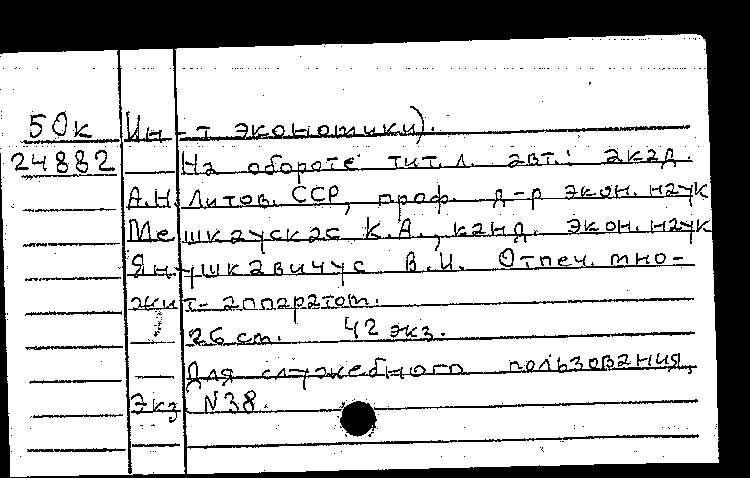 50к Ин-т экономики).
24882 На обороте тит. л. авт.: акад.
А.Н. Литов. ССР, проф. д-р экон. наук
Мешкаускас К.А., канд. экон. наук
Янушкавичус В.И. Отпеч. мно-
жит. аппаратом.
26 см. 42 экз.
Для служебного пользования,
Экз. N38.